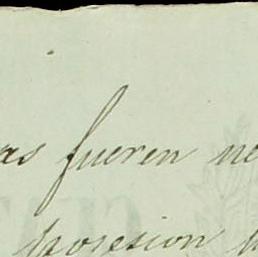 as fueren ne
posesion